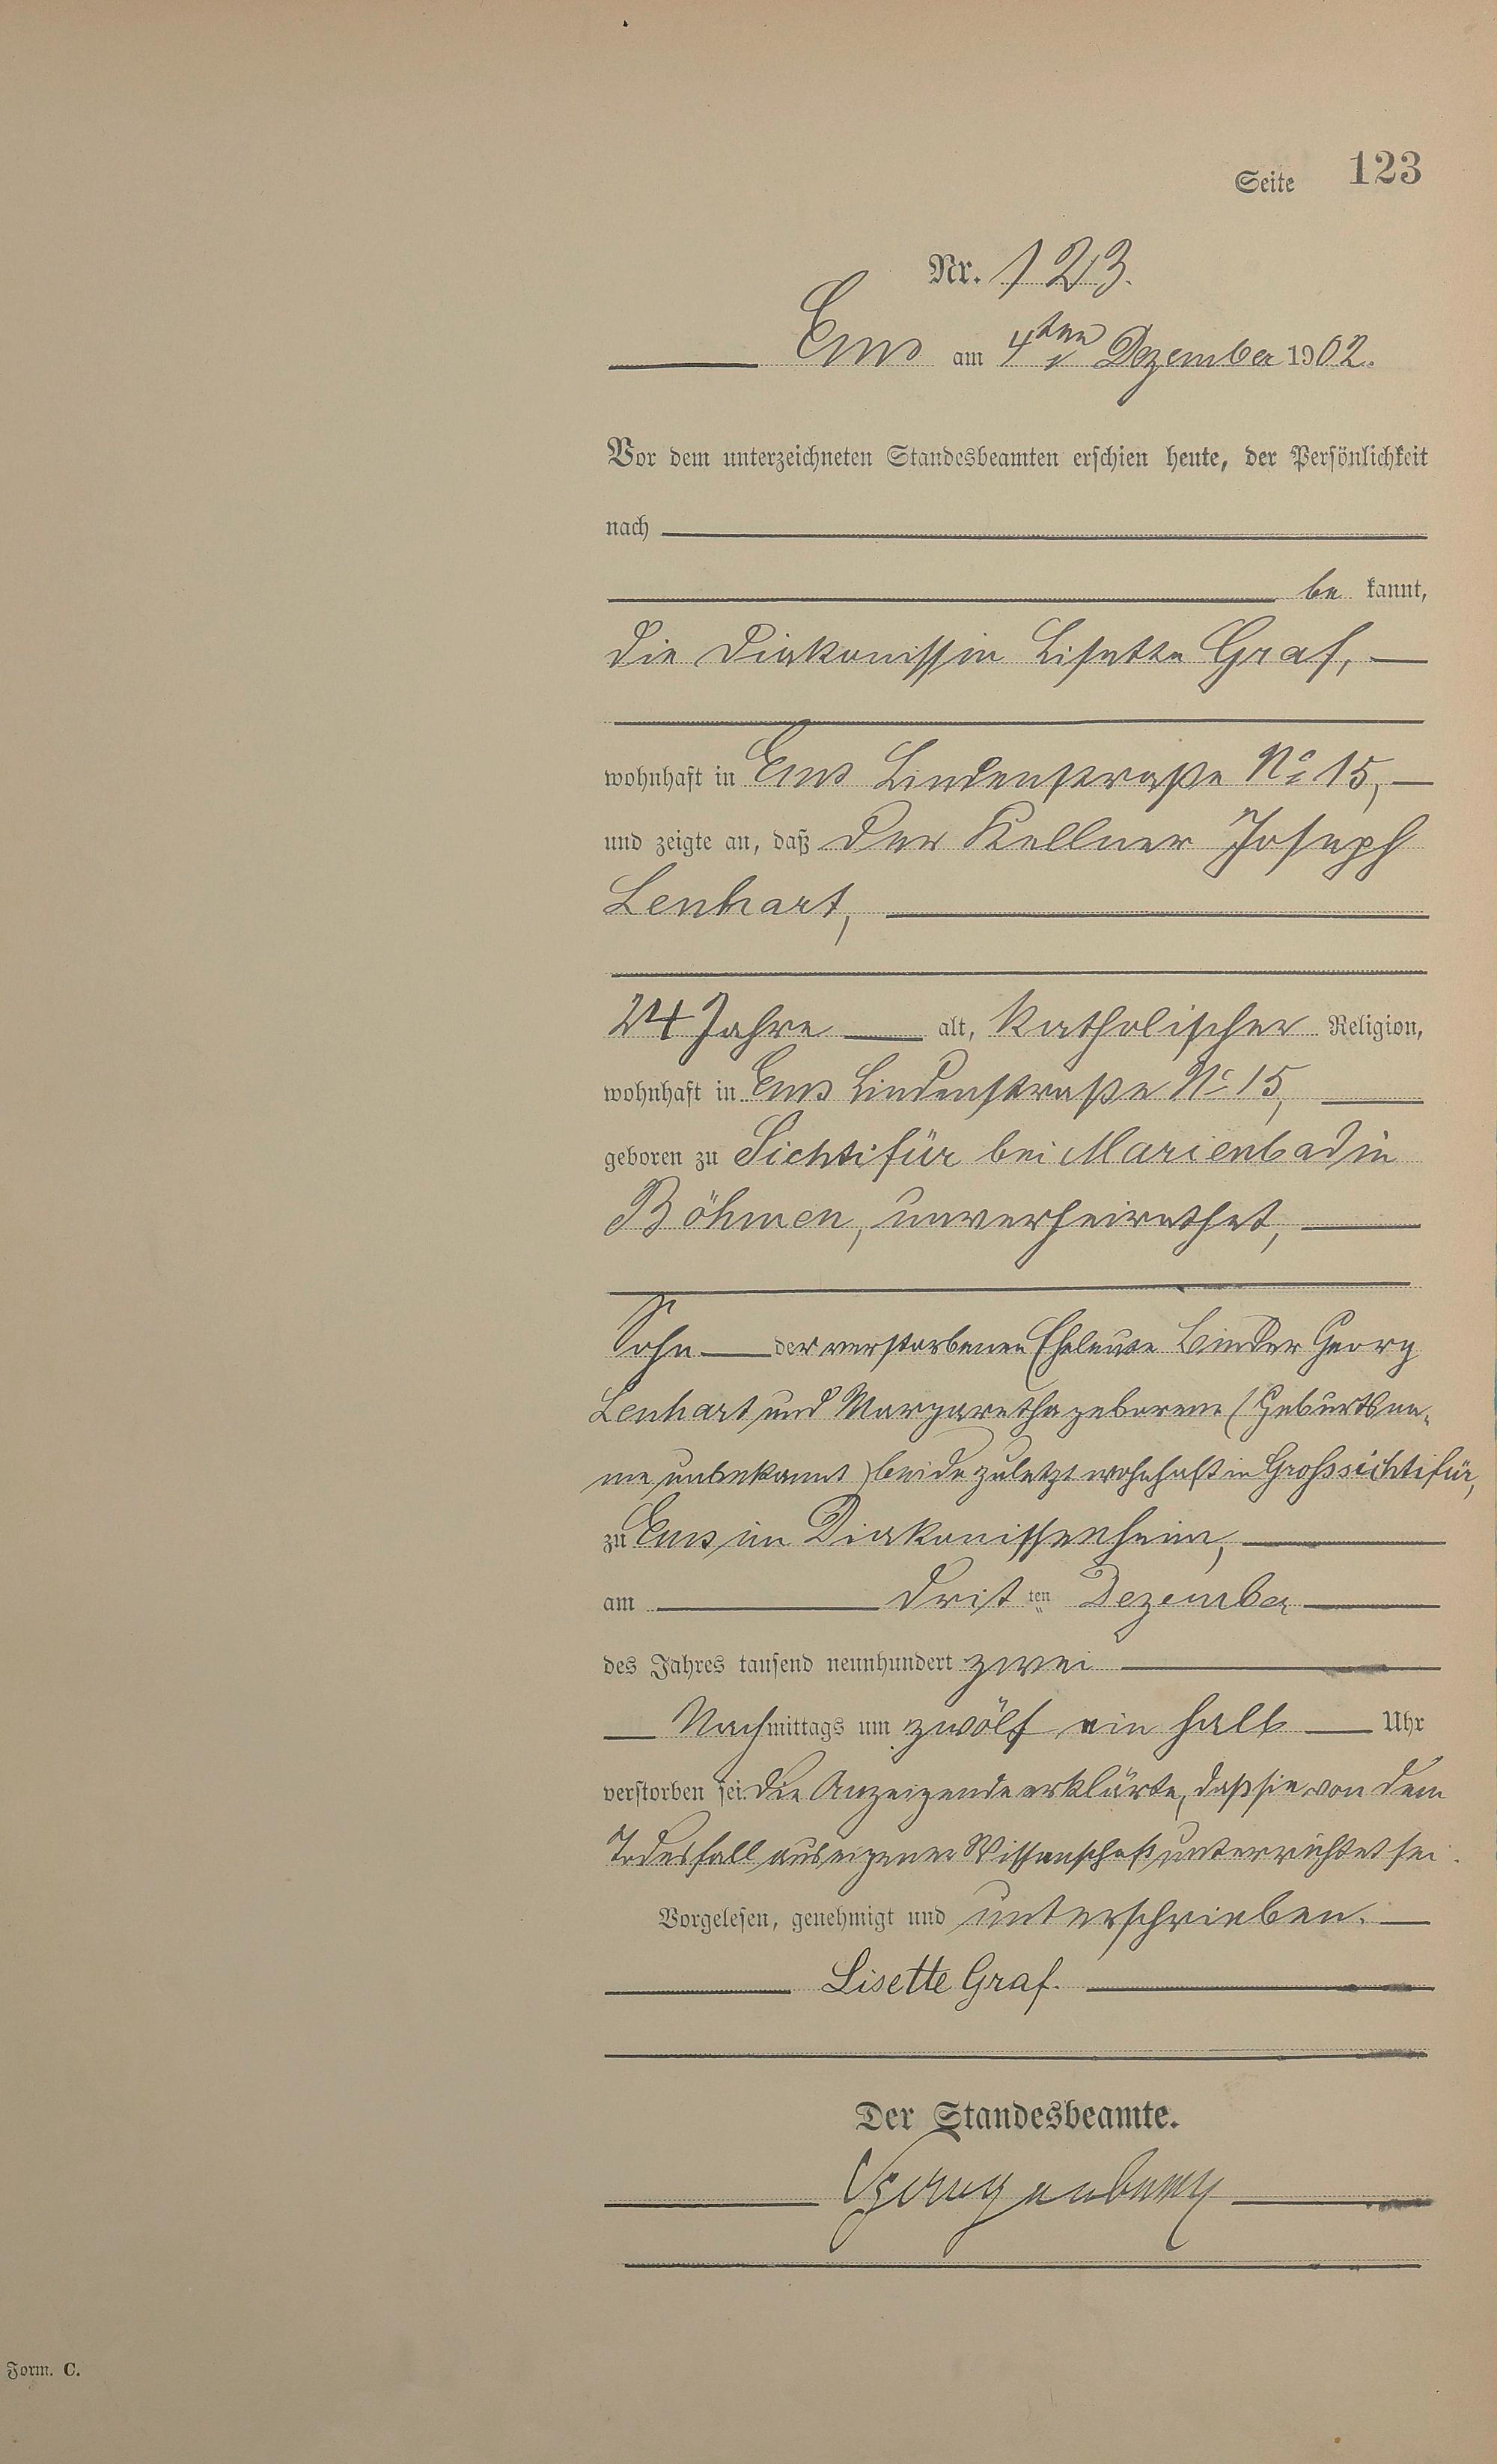 Seite 123
Nr. 123.
Ems am 4ten Dezember 1902.
Vor dem unterzeichneten Standesbeamten erschien heute, der Persönlichkeit
nach
be kannt,
die Diakonissin Lisette Graf,
wohnhaft in Ems Lindenstraße No 15,
und zeigte an, daß der Kellner Joseph
Lenhart,
24 Jahre alt, katholischer Religion,
wohnhaft in Ems Lindenstraße No 15,
geboren zu Sichtifür bei Marienbad in
Böhmen, unverheirathet,
Sohn der verstorbenen Eheleute Binder Georg
Lenhart und Margaretha geborene (Geburtsna-
me unbekannt) beide zuletzt wohnhaft in Grosssichtifür,
zu Ems im Diakonissenheim,
am drit ten Dezember
des Jahres tausend neunhundert zwei
Nachmittags um zwölf ein halb Uhr
verstorben sei. Die Anzeigende erklärte, daß sie von dem
Todesfall aus eigener Wissenschaft unterrichtet sei.
Vorgelesen, genehmigt und unterschrieben.
Lisette Graf.
Der Standesbeamte.
Form. C.